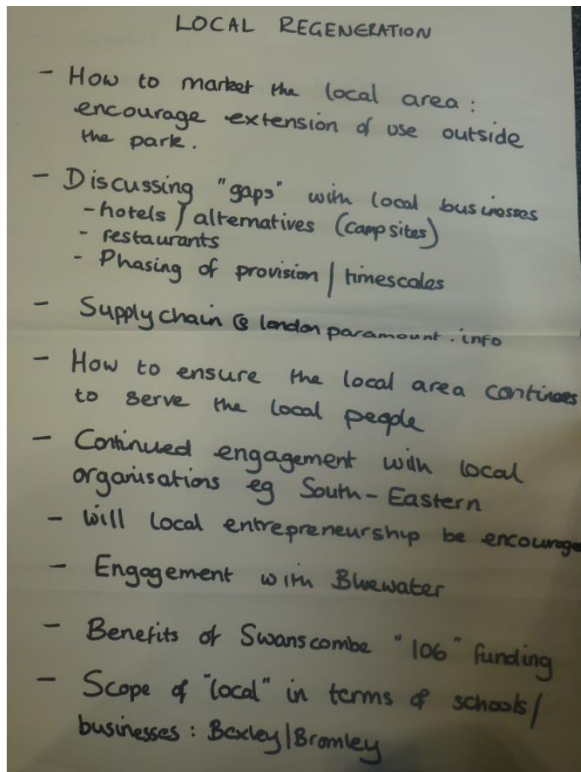 LOCAL REGENERATION
- How to market the local area :
encourage extension of use outside
the park.
- Discussing "gaps" with local businesses
- hotels / alternatives (campsites)
- restaurants
- Phasing of provision / timescales
- Supplychain @ londonparamount.info
- How to ensure the local area continues
to serve the local people
- Continued engagement with local
organisations eg South-Eastern
- Will local entrepreneurship be encourage
- Engagement with Bluewater
- Benefits of Swanscombe "106" funding
- Scope of "local" in terms of schools/
businesses : Bexley/Bromley